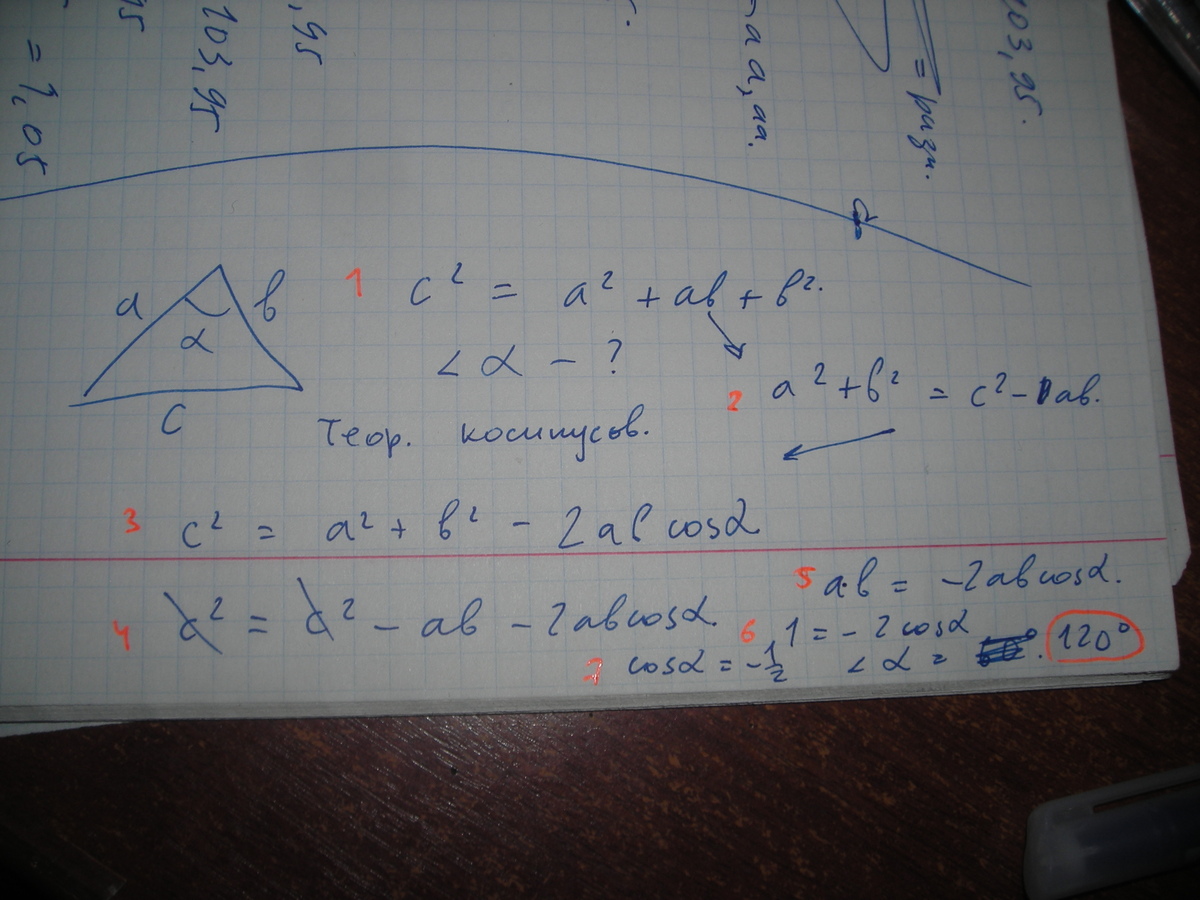 ,95
103,95
= 1,05
95
103,95.
= разн.
а а, аа.
a
b
α
c
1 c² = a² + ab + b².
< α - ?
2 a² + b² = c² - 1ab.
Теор. косинусов.
3 c² = a² + b² - 2ab cosα
4 c² = c² - ab - 2abcosα.
5 a·b = -2abcosα.
6 1 = - 2cosα
7 cosα = -1/2 < α = 120°